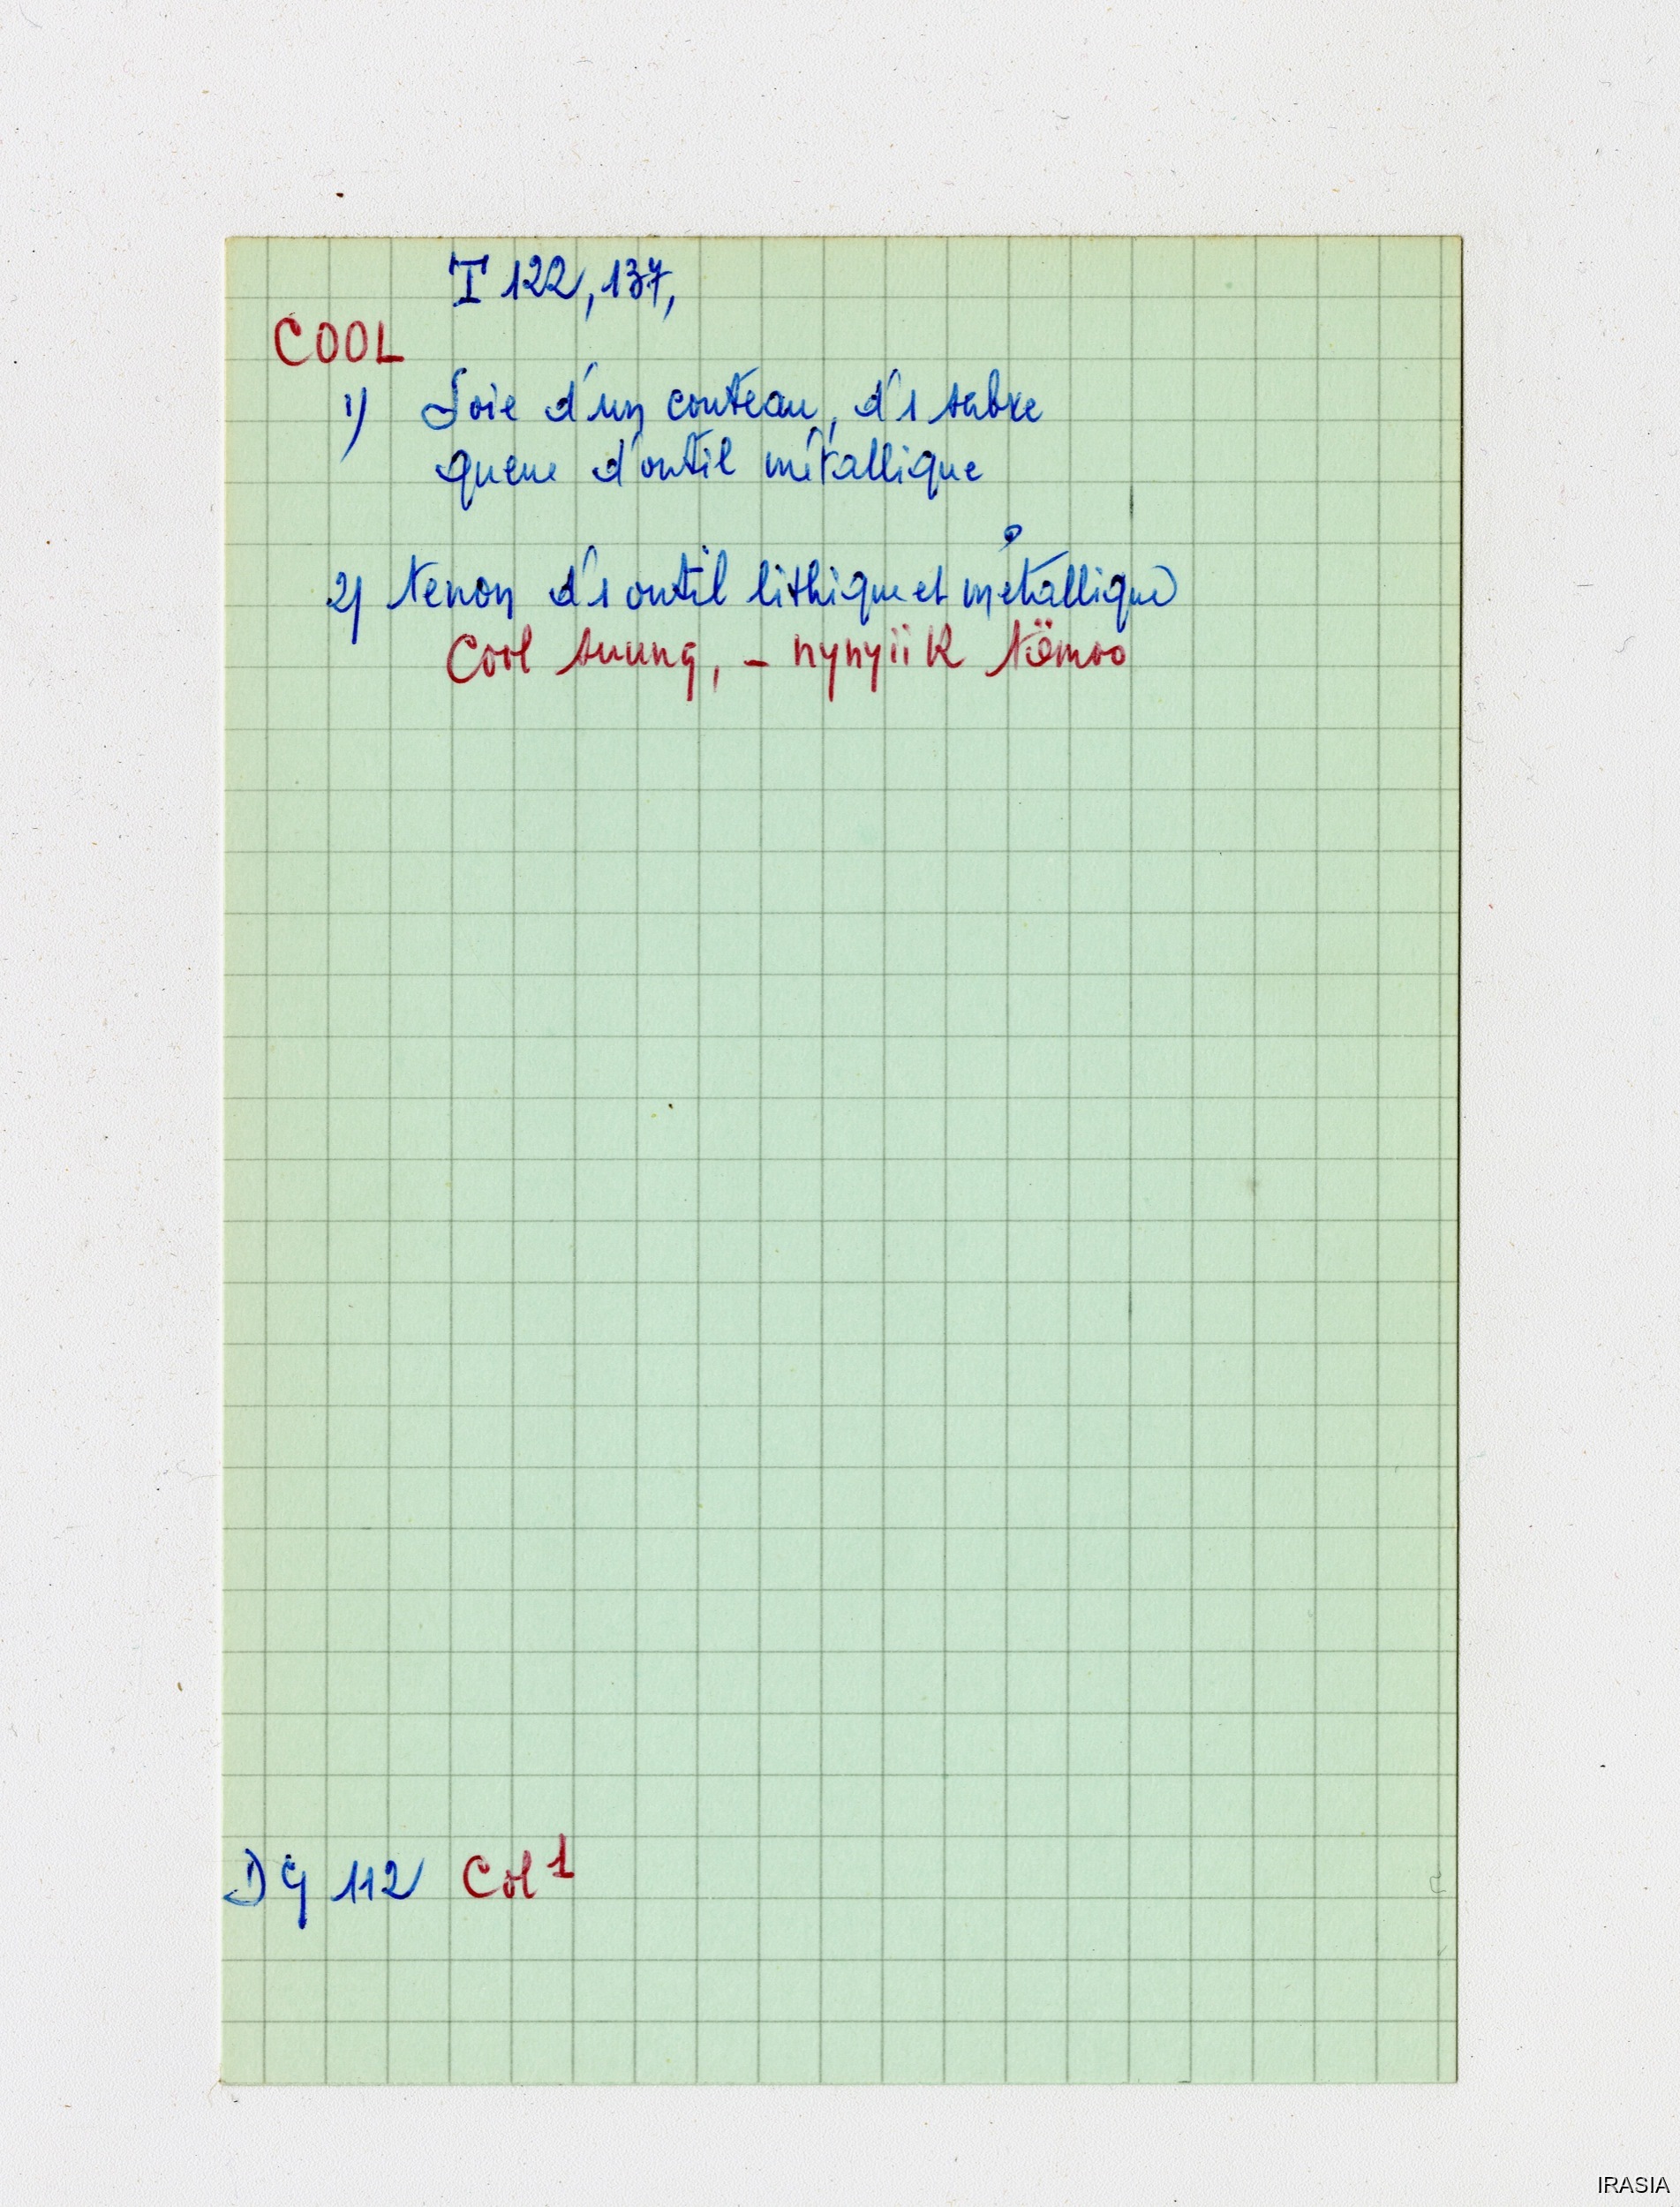 T 122, 137,
COOL
1) Soie d'un couteau, d'1 sabre
queue d'outil métallique
2) tenon d'1 outil lithique et métallique
Cool suung, – nynyiik tömoo
DG 112 Col 1
IRASIA